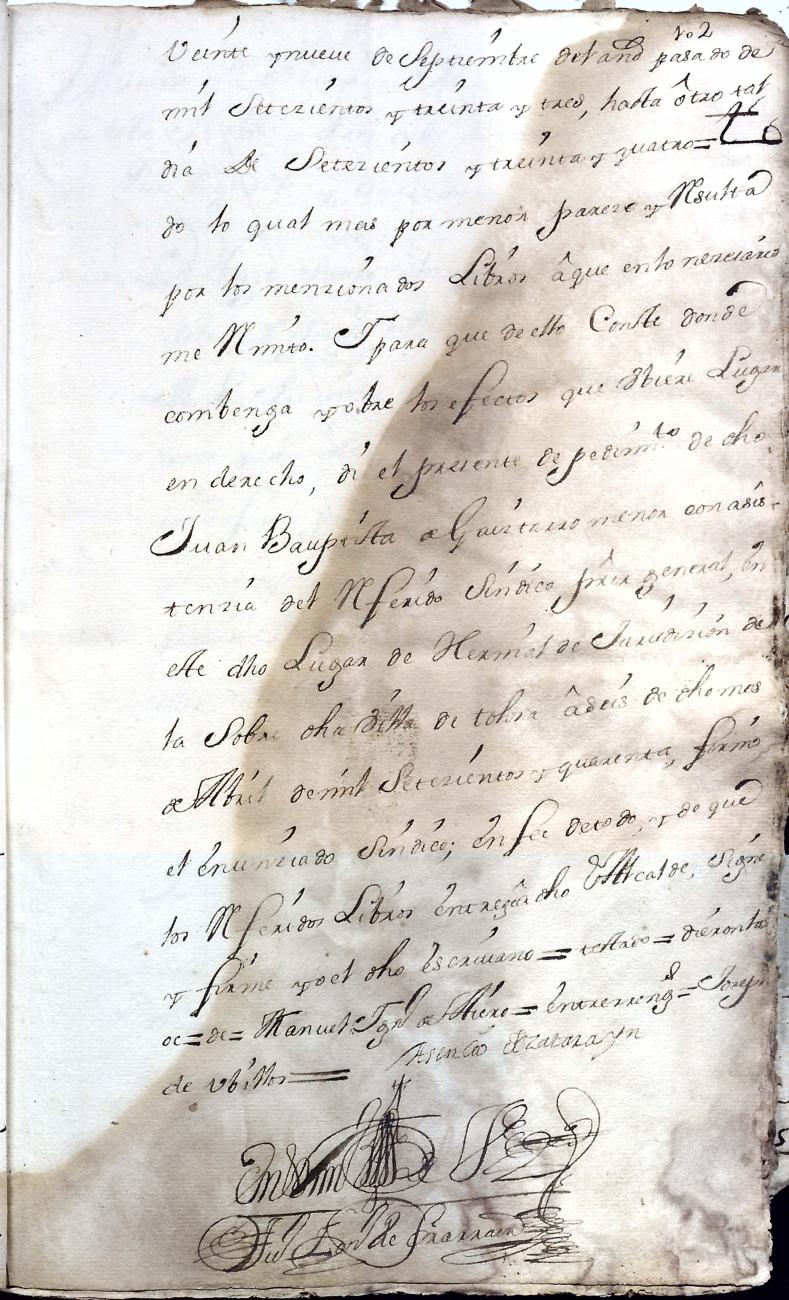 102
Veinte y nueve de Septiembre del año pasado de
mil Setezientos y treinta y tres, hasta ôtro tal
dia de Setezientos y treinta y quatro= to
do lo qual mas por menor pareze y Resulta
por los menzionados Libros â que en lo nezesario
me Rimto. Y para que de ello Conste donde
combenga y obre los efectos que ubiere Lugar
en derecho, di el presente de pedimto de dho
Juan Bauptista de Gaiztarro menor con asis-
tenzia del Referido Sindico prôr general, en
este dho Lugar de Hernial de Jurisdizion de
la Sobre dha Villa de tolosa â seis de dho mes
de Abril de mil Setezientos y quarenta, firmó
el enunziado Sindico; en fee de todo, y de que
los Referidos Libros entregué â dho Alcalde, Signé
y firmé yo el dho escrivano = testado = dieronla
oc= de= Manuel Ign de = entrereng= Joseph
de Ubillos=
Asencio de Zatarayn
En tes